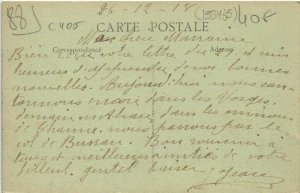 88
26-12-18
C 405
158465
40F
CARTE POSTALE
Ma chère Marraine
Correspondance
Adresse
Bien reçu votre lettre et suis
heureux d'apprendre de vos bonnes
nouvelles. Aujourd'hui nous can-
tonnons dans les Vosges.
demain en Alsace dans les environs
de Thann, nous passons par le
col de Bussan. Bon souvenir à
tous et meilleures amitiés de votre
filleul